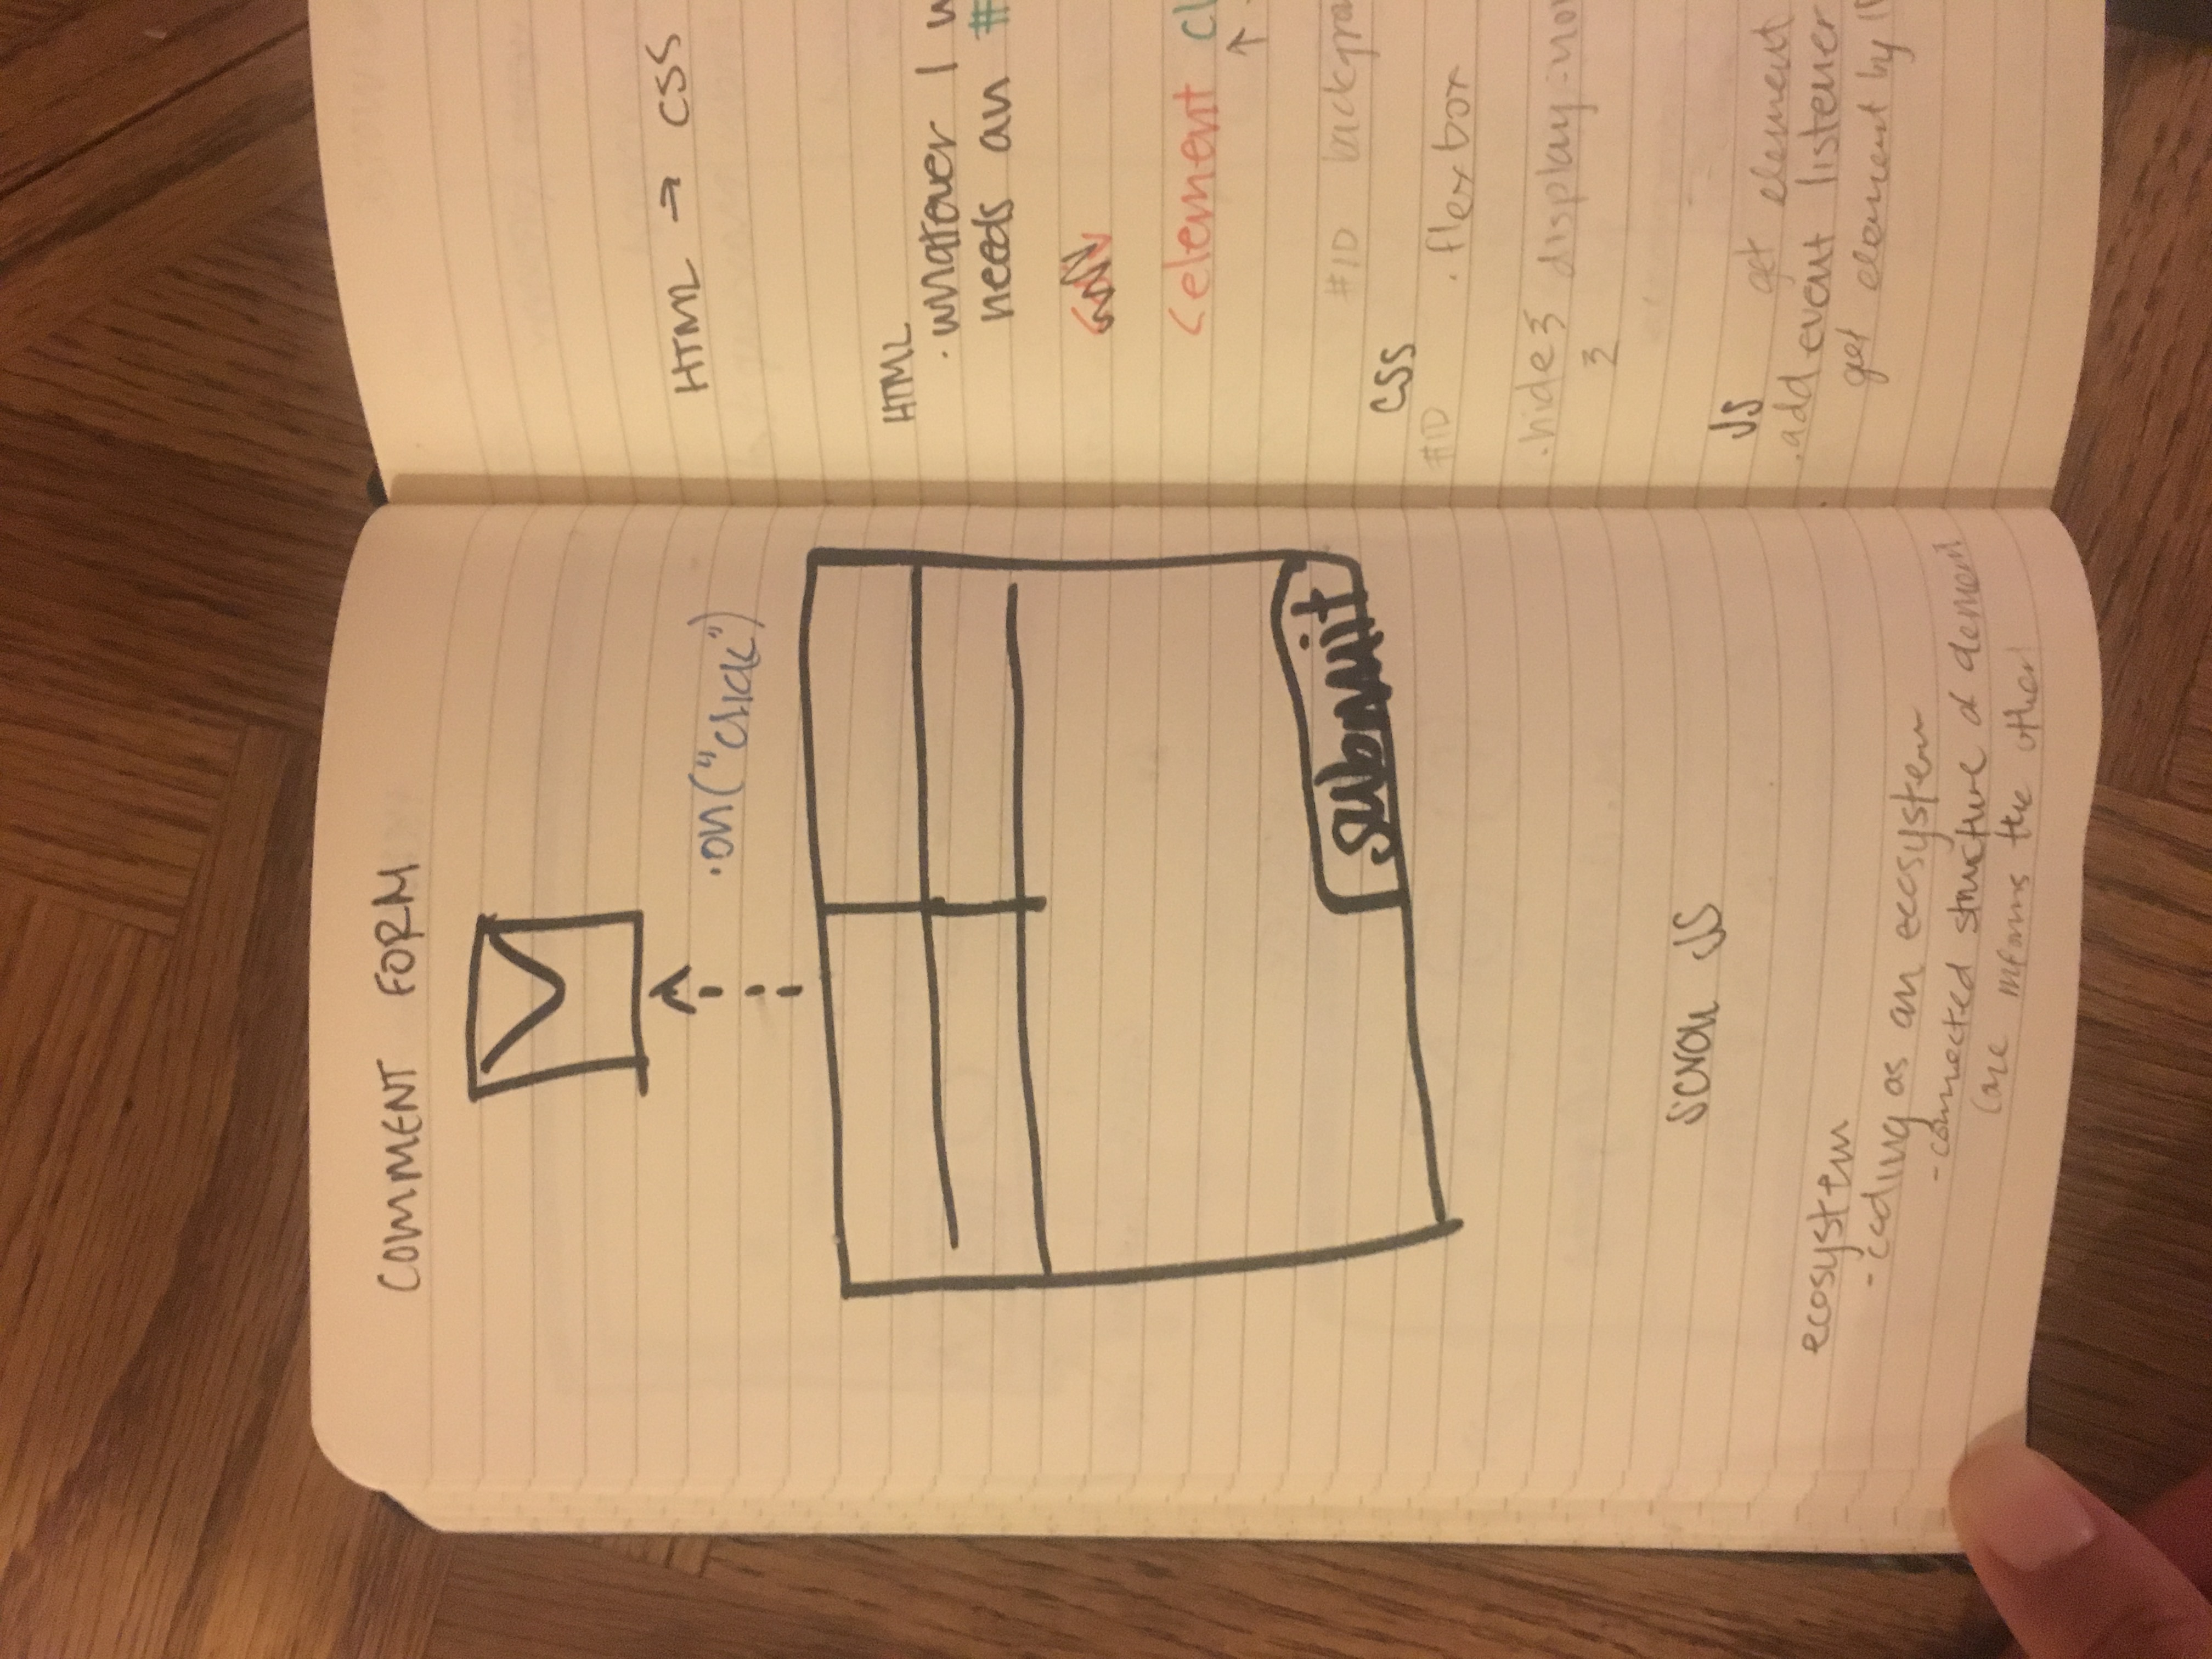 COMMENT FORM
.on("click")
submit
scroll JS
ecosystem
- coding as an ecosystem
- connected structure of element
(one informs the other)
HTML → CSS
HTML
. whatever I w
needs an #
<element cl
↑
#ID backgro
CSS
#ID . flexbox
.hide{ display:no
}
JS get element
.add event listener
get element by I